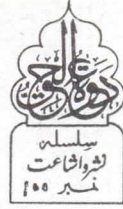 دعوة الحق
سلسلہ
نشرواشاعت
نمبر ۱۵۵